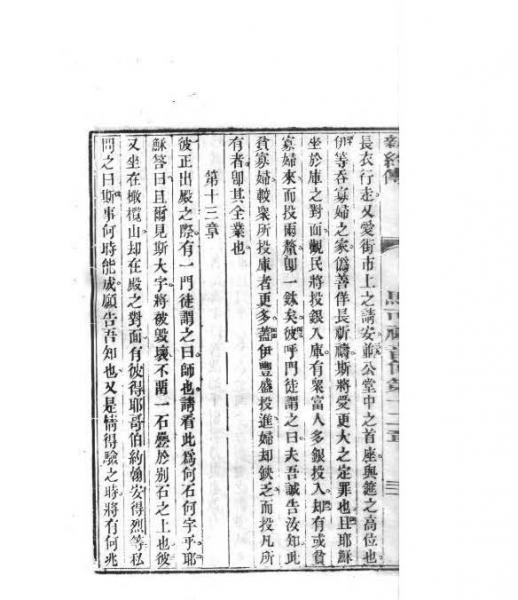 新經傳 馬可福音傳第十二章
長衣行走又愛街市上之請安並公堂中之首座與筵之高位也
伊等吞寡婦之家僞善佯長祈禱斯將受更大之定罪也且耶穌
坐於庫之對面觀民將投銀入庫有衆富人多銀投入却有或貧
寡婦來而投兩釐卽一錢矣彼呼門徒謂之曰夫吾誠告汝知此
貧寡婦較衆所投庫者更多蓋伊豐盛投進婦却缺乏而投凡所
有者卽其全業也
第十三章
彼正出殿之際有一門徒謂之曰師也請看此爲何石何宇乎耶
穌答曰且爾見斯大宇將被毀壞不畱一石壘於別石之上也彼
又坐在橄欖山却在殿之對面有彼得耶哥伯約翰安得烈等私
問之曰斯事何時能成願告吾知也又是情得驗之時將有何兆